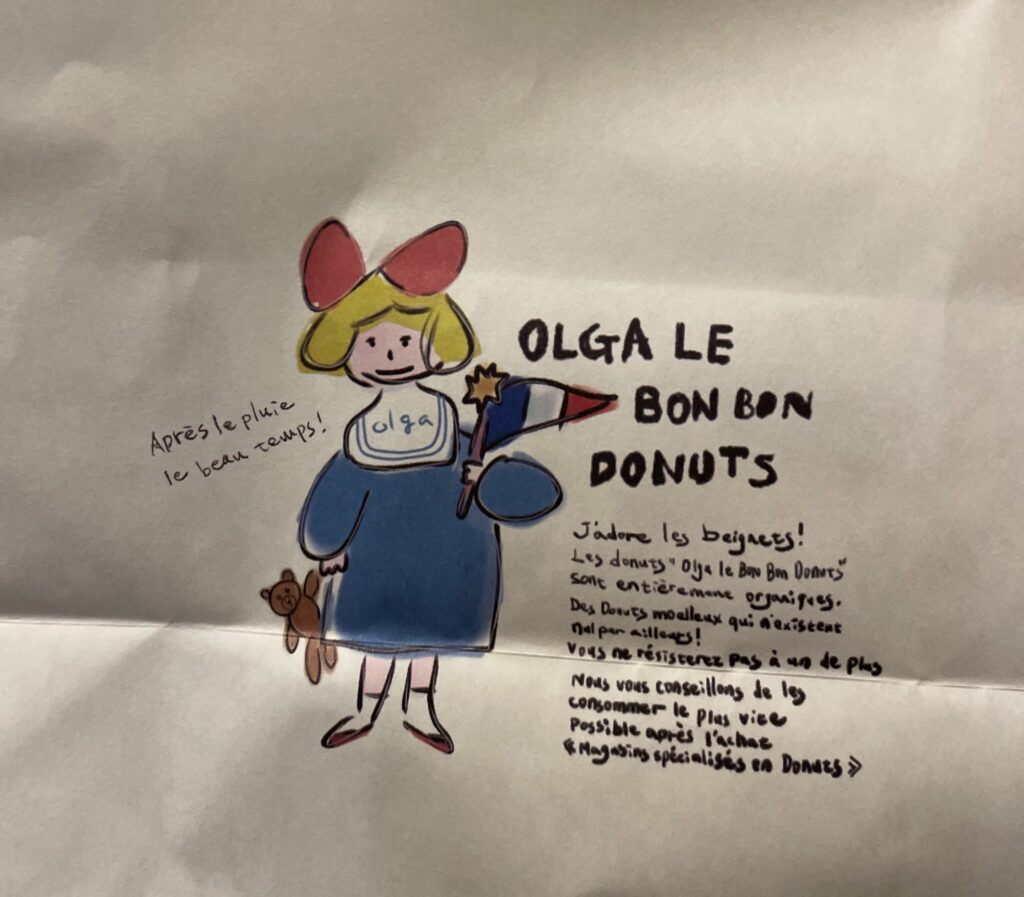 OLGA LE
BON BON
DONUTS
olga
Après le pluie
le beau temps!
J'adore les beignets!
Les donuts "Olga le Bon Bon Donuts"
sont entièrement organiques.
Des Donuts moelleux qui n'existent
nul par ailleurs!
Vous ne résisterez pas à un de plus
Nous vous conseillons de les
consommer le plus vite
possible après l'achat
《Magasins spécialisés en Donuts》